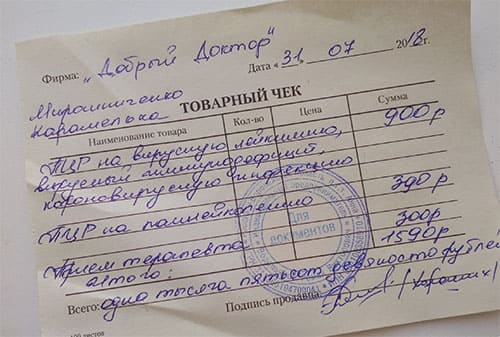 Фирма: „Добрый Доктор"
Дата « 31. 07 2018г.
Мирошниченко
Карамелька
ТОВАРНЫЙ ЧЕК
Наименование товара Кол-во Цена Сумма
ПЦР на вирусную лейкимию, 900р
вирусный иммунодефицит,
короновирусную инфекцию
ПЦР на панлейкопению 390р
Приём терапевта 300р
итого: 1590р
Для
документов
Всего: одна тысяча пятьсот девяносто рублей
Подпись продавца
100 листов